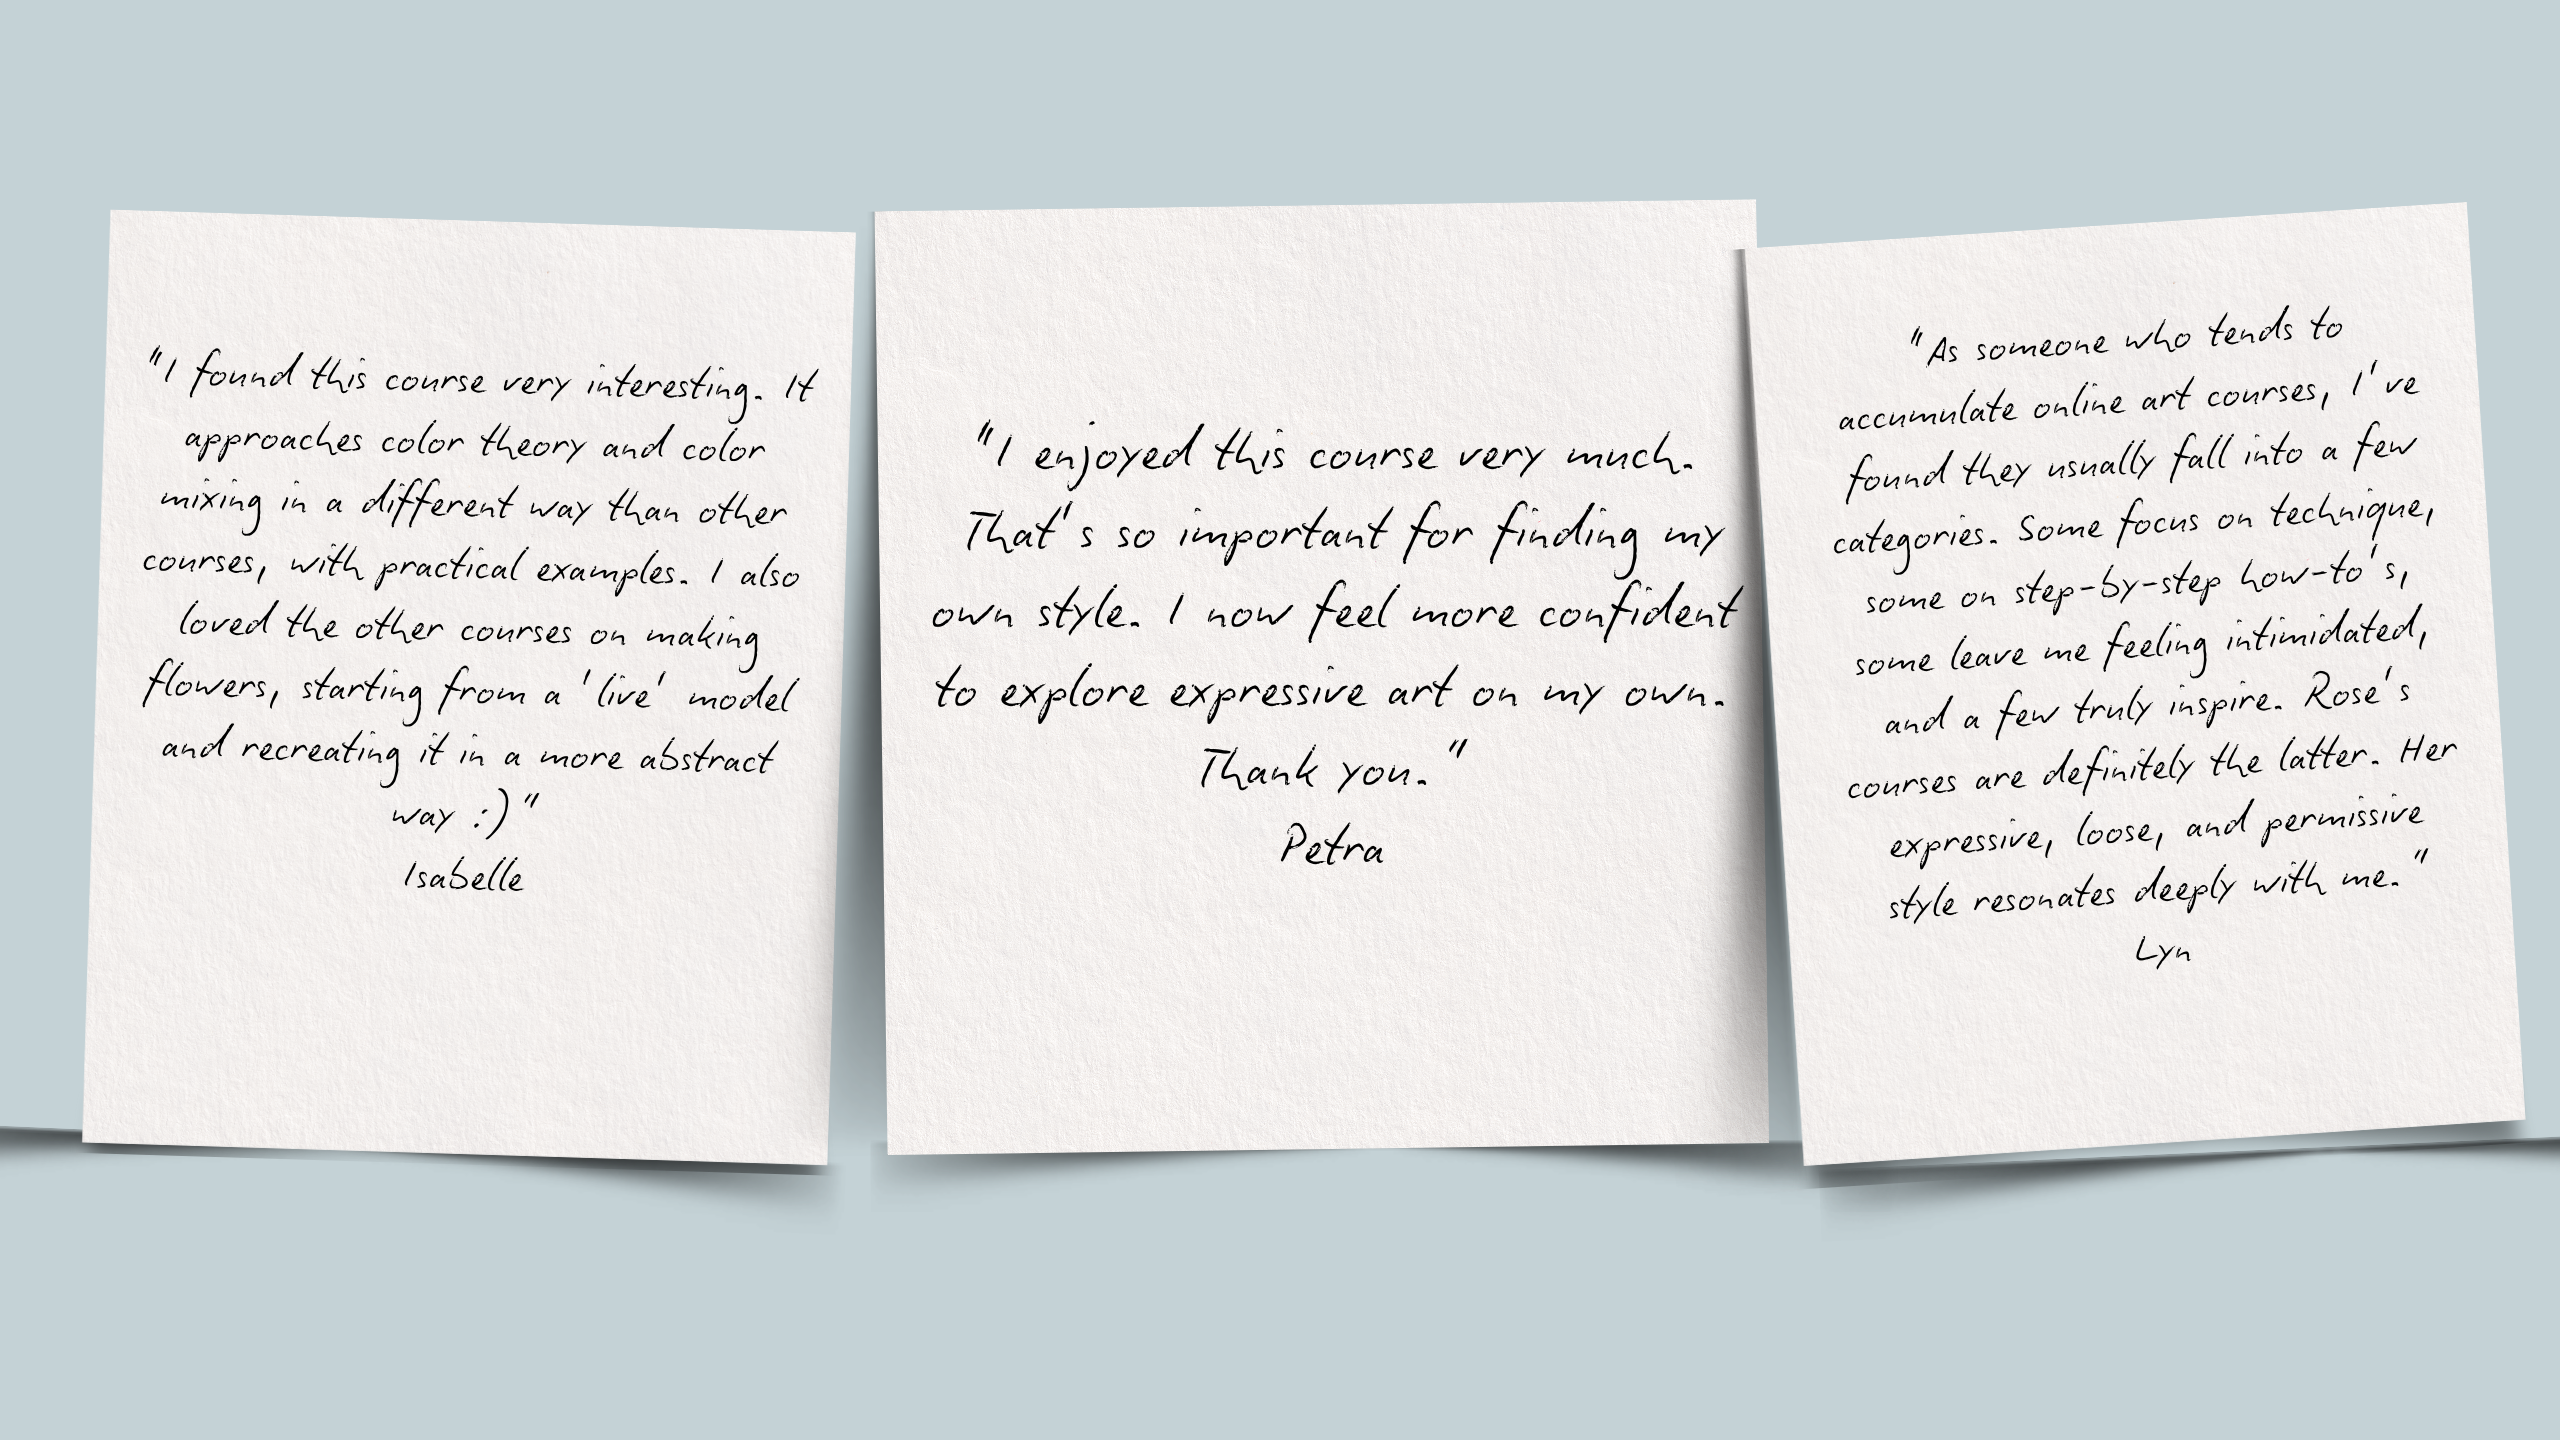 "I found this course very interesting. It
approaches color theory and color
mixing in a different way than other
courses, with practical examples. I also
loved the other courses on making
flowers, starting from a 'live' model
and recreating it in a more abstract
way :)"
Isabelle
"I enjoyed this course very much.
That's so important for finding my
own style. I now feel more confident
to explore expressive art on my own.
Thank you."
Petra
"As someone who tends to
accumulate online art courses, I've
found they usually fall into a few
categories. Some focus on technique,
some on step-by-step how-to's,
some leave me feeling intimidated,
and a few truly inspire. Rose's
courses are definitely the latter. Her
expressive, loose, and permissive
style resonates deeply with me."
Lyn